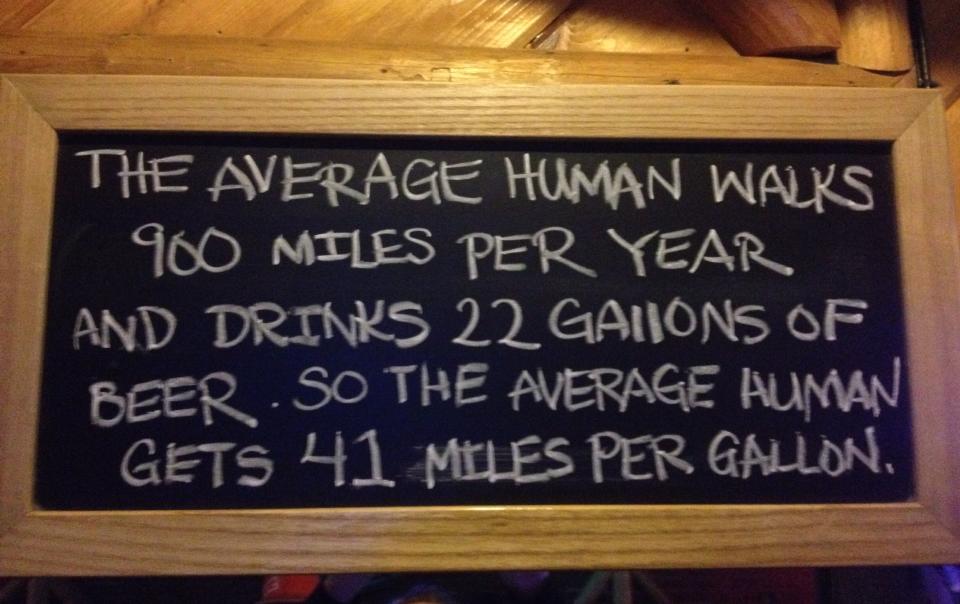 THE AVERAGE HUMAN WALKS
900 MILES PER YEAR
AND DRINKS 22 GAllONS OF
BEER. SO THE AVERAGE HUMAN
GETS 41 MILES PER GALLON.